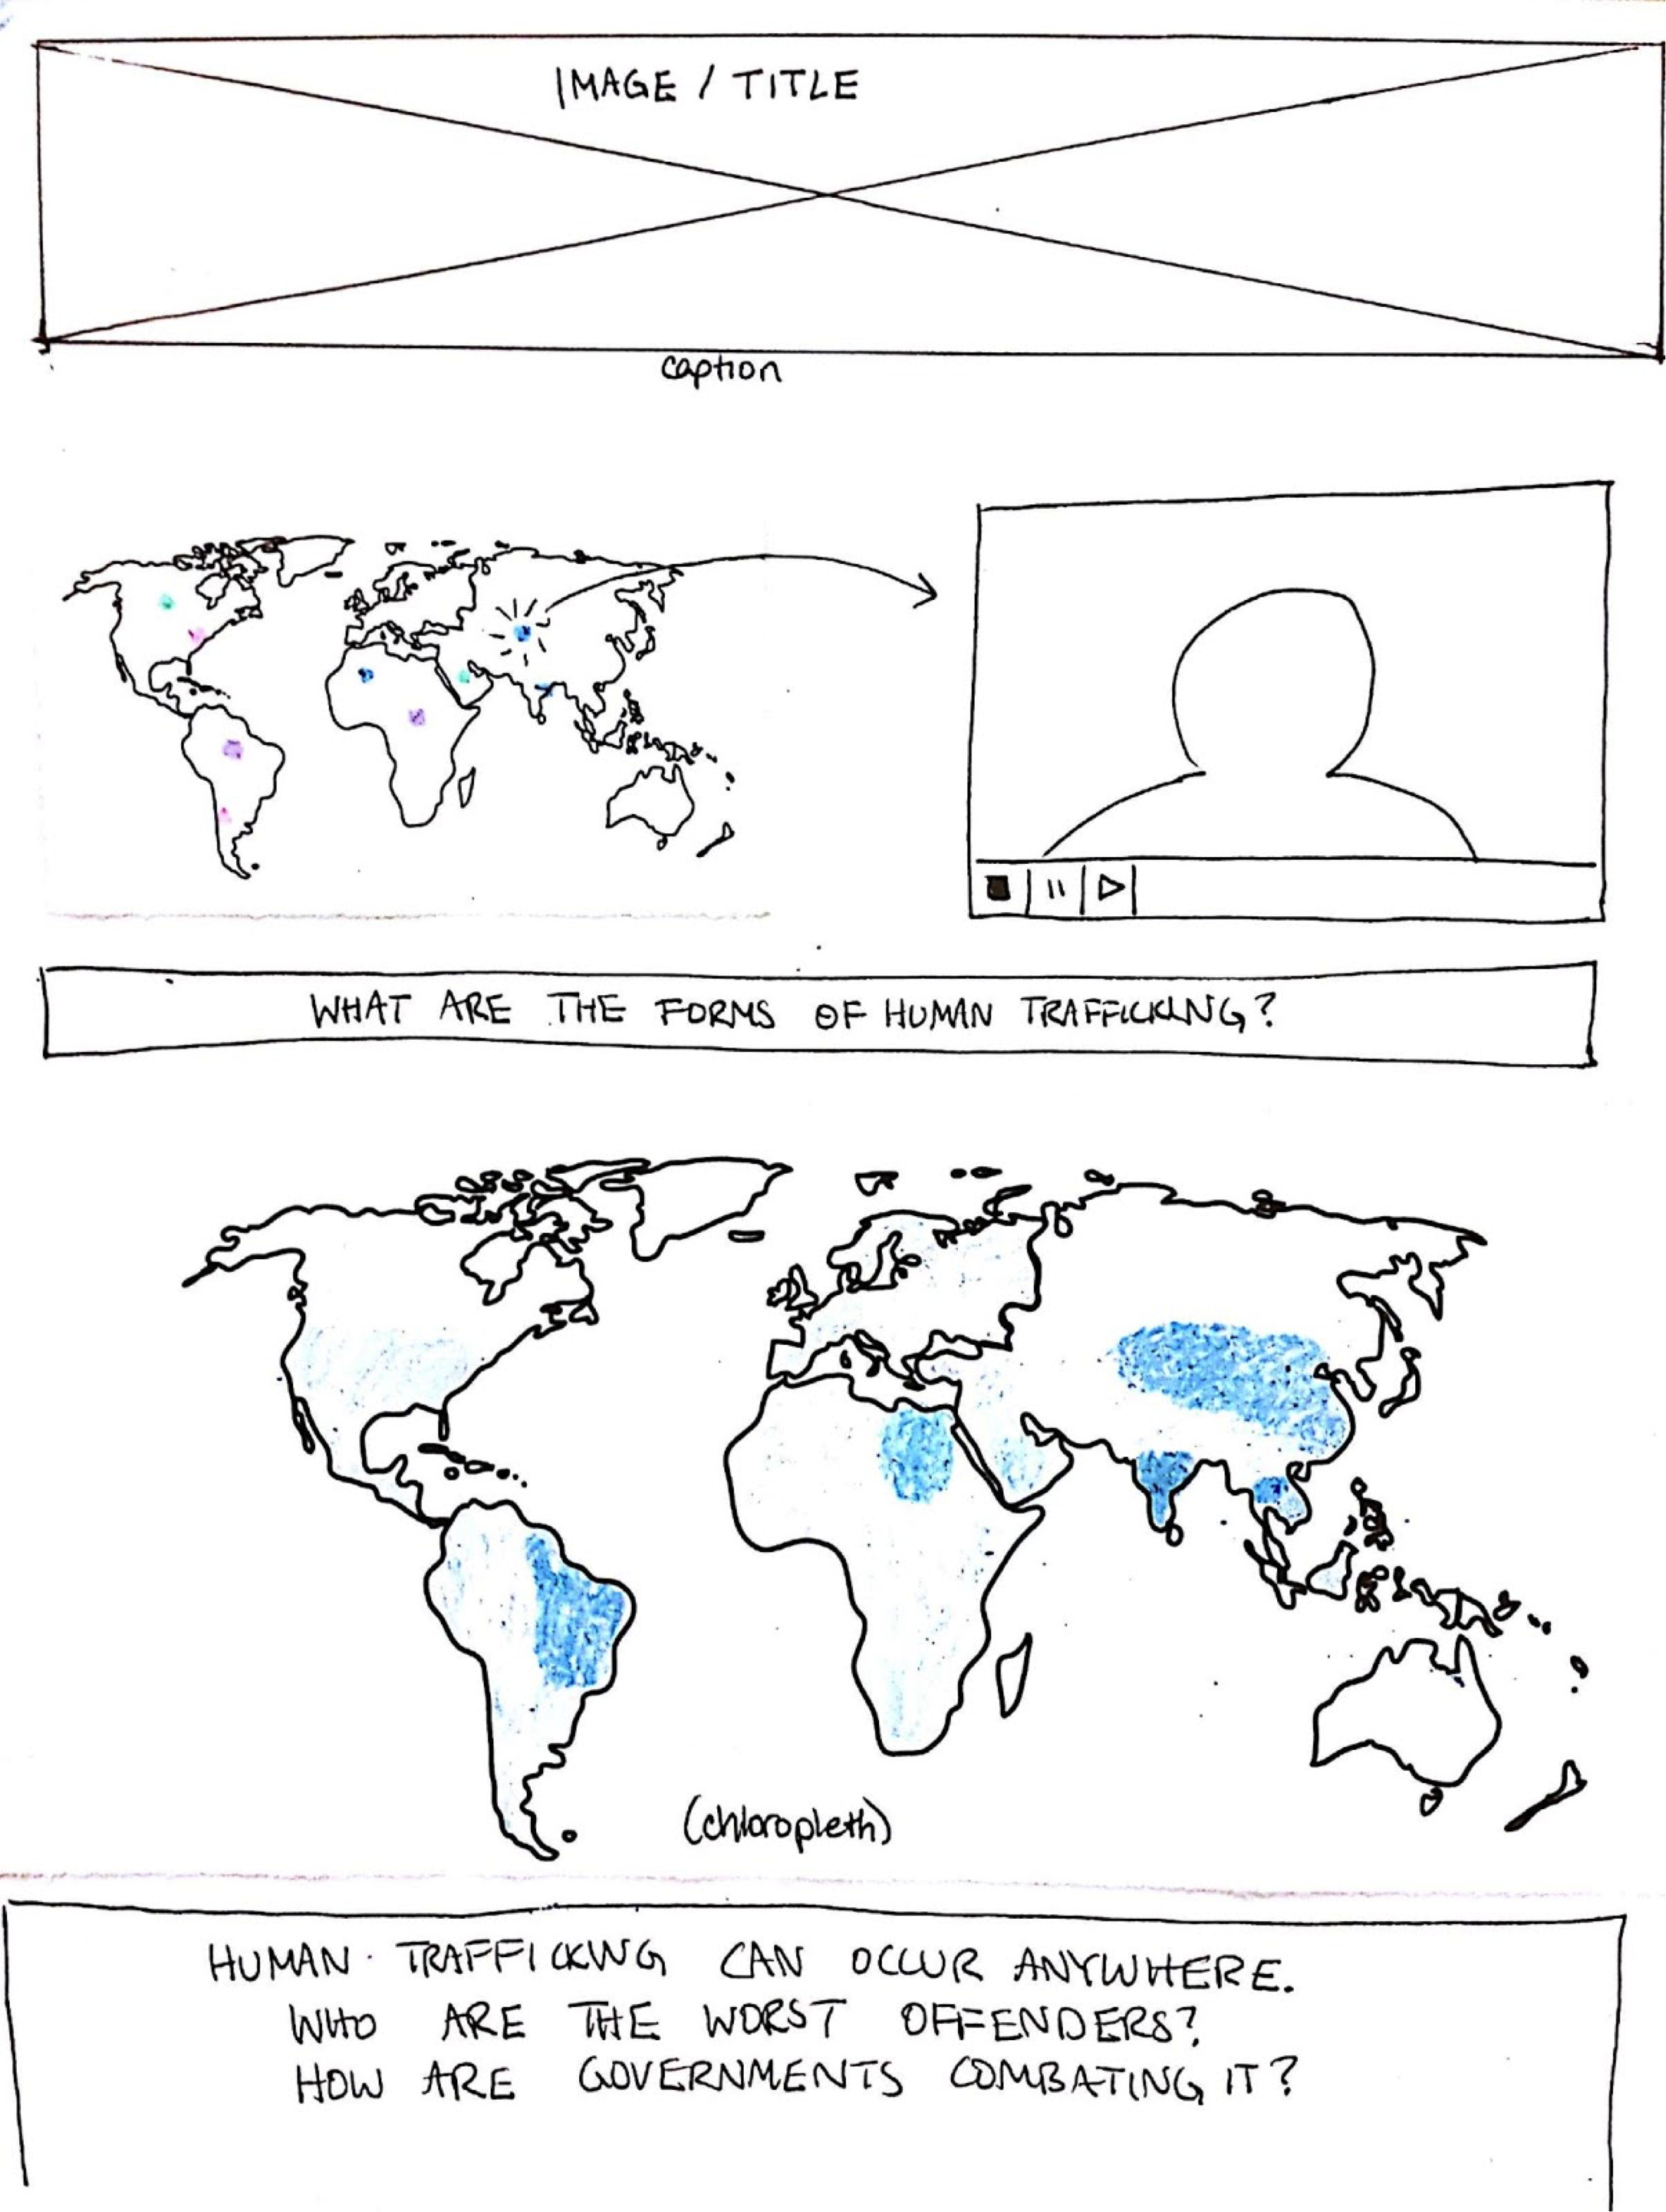 IMAGE / TITLE
caption
WHAT ARE THE FORMS OF HUMAN TRAFFICKING?
(chloropleth)
HUMAN TRAFFICKING CAN OCCUR ANYWHERE.
WHO ARE THE WORST OFFENDERS?
HOW ARE GOVERNMENTS COMBATING IT?